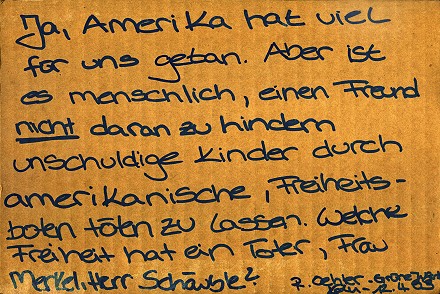 Ja, Amerika hat viel
for uns getan. Aber ist
es menschlich, einen Freund
nicht daran zu hindern
unschuldige Kinder durch
amerikanische, Freiheits-
boten töten zu lassen. Welche
Freiheit hat ein Toter, Frau
Merkel, Herr Schäuble? R. Oehler-